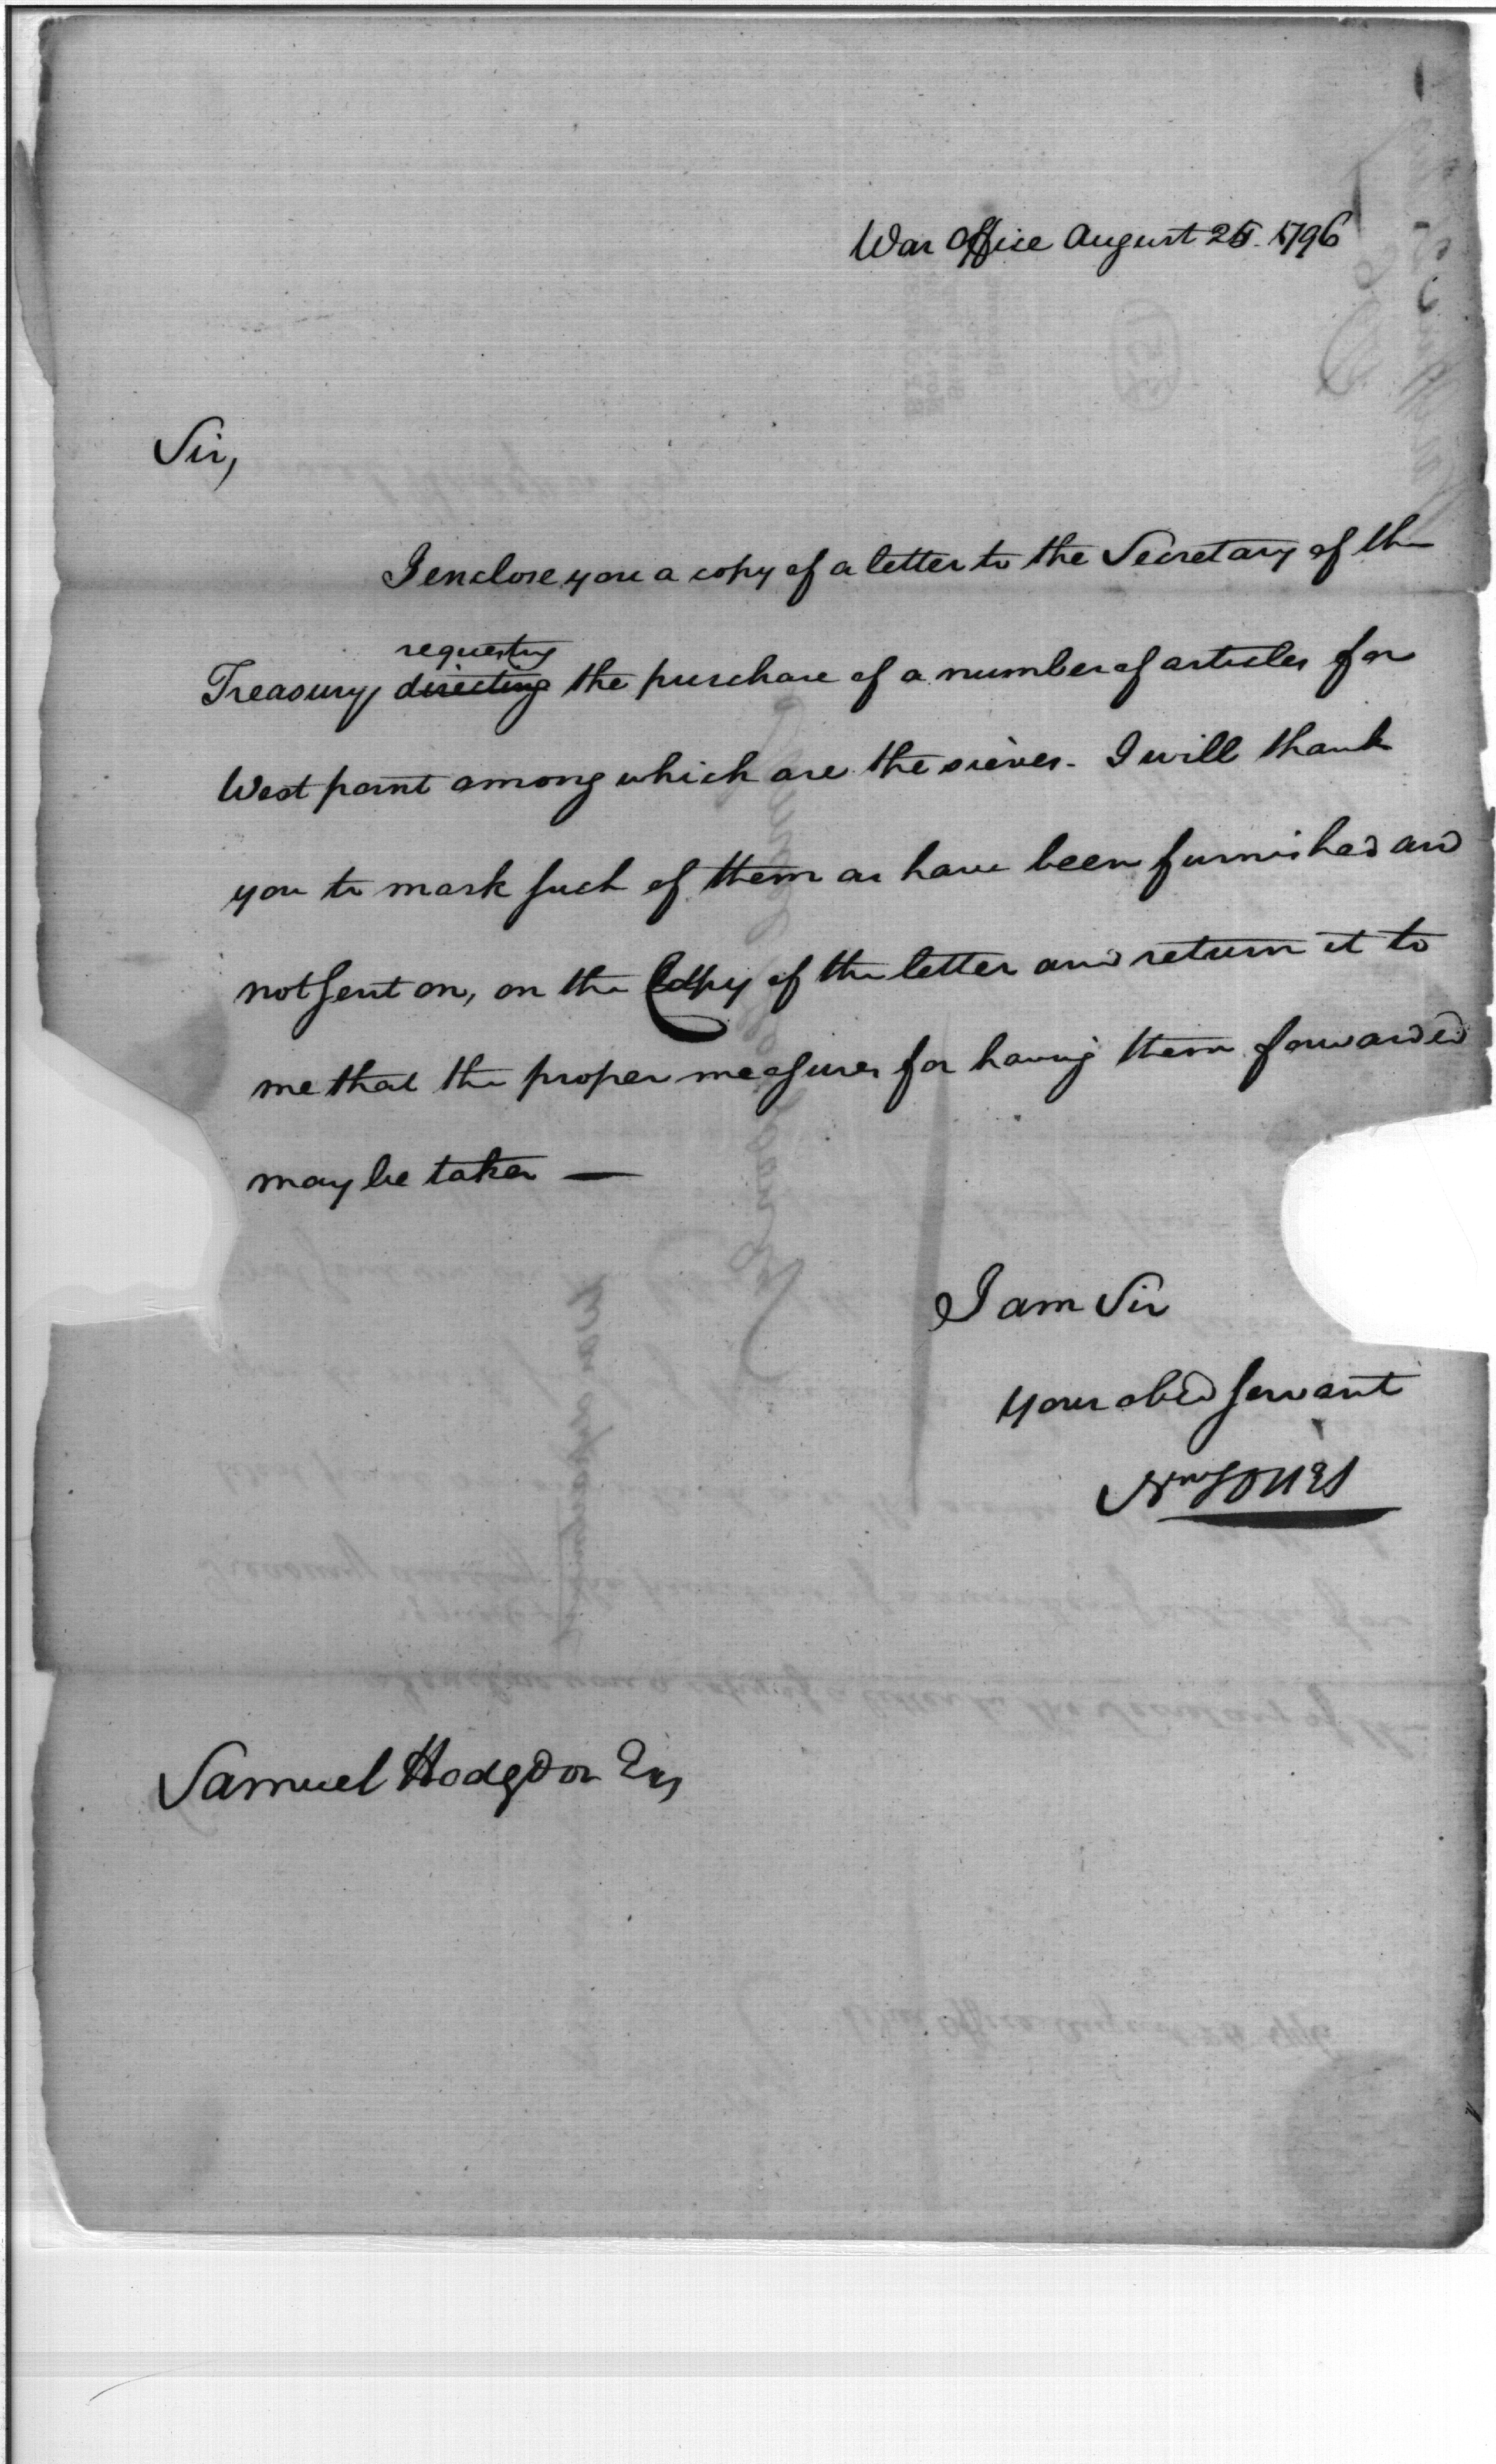 War Office August 25. 1796
Sir,
I enclose you a copy of a letter to the Secretary of the
requesting
Treasury directing the purchase of a number of articles for
West point among which are the sieves. I will thank
you to mark such of them as have been furnished and
not sent on, on the Copy of the letter and return it to
me that the proper measures for having them forwarded
may be taken —
I am Sir
your obed servant
Wm Jones
Samuel Hodgdon Esq